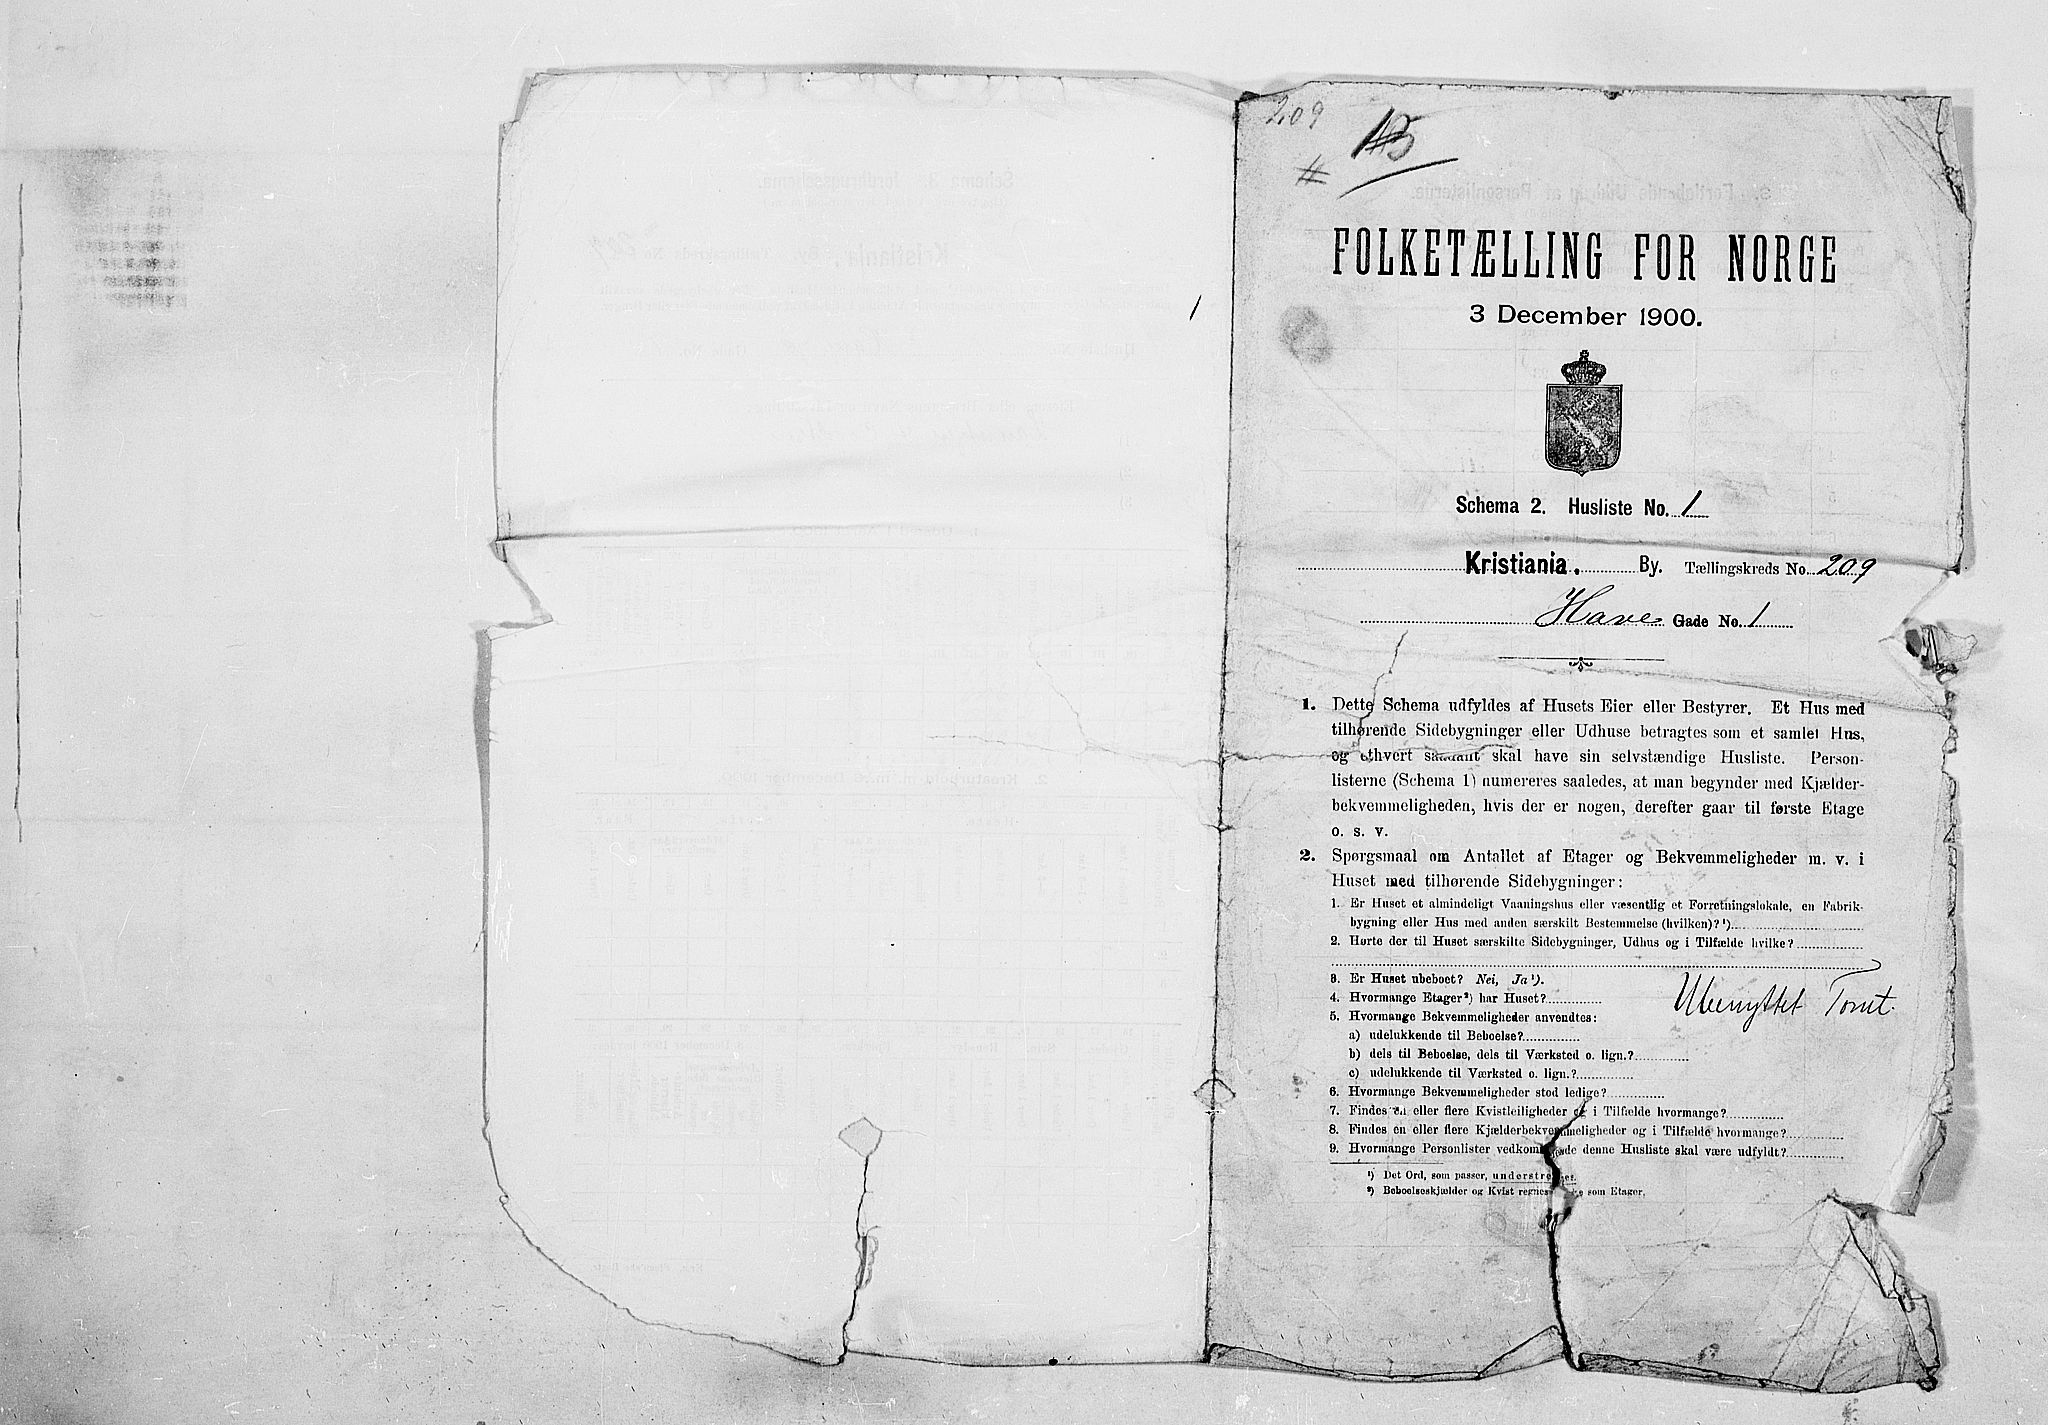 1
209
#
FOLKETÆLLING FOR NORGE
3 December 1900.
Schema 2. Husliste No. 1
Kristiania. By. Tællingskreds No. 209
Have Gade No. 1
1. Dette Schema udfyldes af Husets Eier eller Bestyrer. Et Hus med
tilhørende Sidebygninger eller Udhuse betragtes som et samlet Hus,
og ethvert saadant skal have sin selvstændige Husliste. Person-
listerne (Schema 1) numereres saaledes, at man begynder med Kjælder-
bekvemmeligheden, hvis der er nogen, derefter gaar til første Etage
o. s. v.
2. Spørgsmaal om Antallet af Etager og Bekvemmeligheder m. v. i
Huset med tilhørende Sidebygninger:
1. Er Huset et almindeligt Vaaningshus eller væsentlig et Forretningslokale, en Fabrik-
bygning eller Hus med anden særskilt Bestemmelse (hvilken)? ¹)
2. Hørte der til Huset særskilte Sidebygninger, Udhus og i Tilfælde hvilke?
3. Er Huset ubeboet? Nei, Ja ¹).
4. Hvormange Etager ²) har Huset?
Ubenyttet Tomt.
5. Hvormange Bekvemmeligheder anvendtes:
a) udelukkende til Beboelse?
b) dels til Beboelse, dels til Værksted o. lign.?
c) udelukkende til Værksted o. lign.?
6. Hvormange Bekvemmeligheder stod ledige?
7. Findes en eller flere Kvistleiligheder og i Tilfælde hvormange?
8. Findes en eller flere Kjælderbekvemmeligheder og i Tilfælde hvormange?
9. Hvormange Personlister vedkommende denne Husliste skal være udfyldt?
¹) Det Ord, som passer, understreges.
²) Beboelseskjælder og Kvist regnes ikke som Etager.